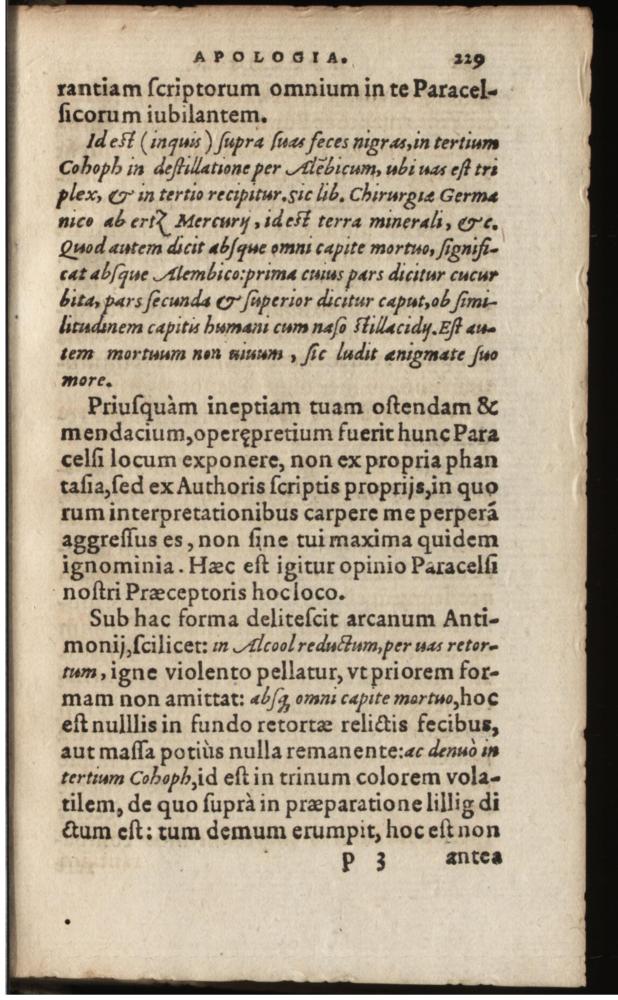 APOLOGIA. 229
rantiam ſcriptorum omnium in te Paracel-
ſicorum iubilantem.
Id eſt (inquis) ſupra ſuas feces nigras, in tertium
Cohoph in deſtillatione per Alẽbicum, ubi uas eſt tri
plex, & in tertio recipitur. sic lib. Chirurgiæ Germa
nico ab ertꝫ Mercurij, id eſt terra minerali, &c.
Quod autem dicit abſque omni capite mortuo, ſignifi-
cat abſque Alembico: prima cuius pars dicitur cucur
bita, pars ſecunda & ſuperior dicitur caput, ob ſimi-
litudinem capitis humani cum naſo ſtillacidij. Eſt au-
tem mortuum non uiuum, ſic ludit ænigmate ſuo
more.
Priuſquàm ineptiam tuam oſtendam &
mendacium, operępretium fuerit hunc Para
celſi locum exponere, non ex propria phan
taſia, ſed ex Authoris ſcriptis proprijs, in quo
rum interpretationibus carpere me perperã
aggreſſus es, non ſine tui maxima quidem
ignominia. Hæc eſt igitur opinio Paracelſi
noſtri Præceptoris hoc loco.
Sub hac forma deliteſcit arcanum Anti-
monij, ſcilicet: in Alcool reductum, per uas retor-
tum, igne violento pellatur, vt priorem for-
mam non amittat: abſq; omni capite mortuo, hoc
eſt nulllis in fundo retortæ relictis fecibus,
aut maſſa potiùs nulla remanente: ac denuò in
tertium Cohoph, id eſt in trinum colorem vola-
tilem, de quo ſuprà in præparatione lillig di
ctum eſt: tum demum erumpit, hoc eſt non
P 3 antea